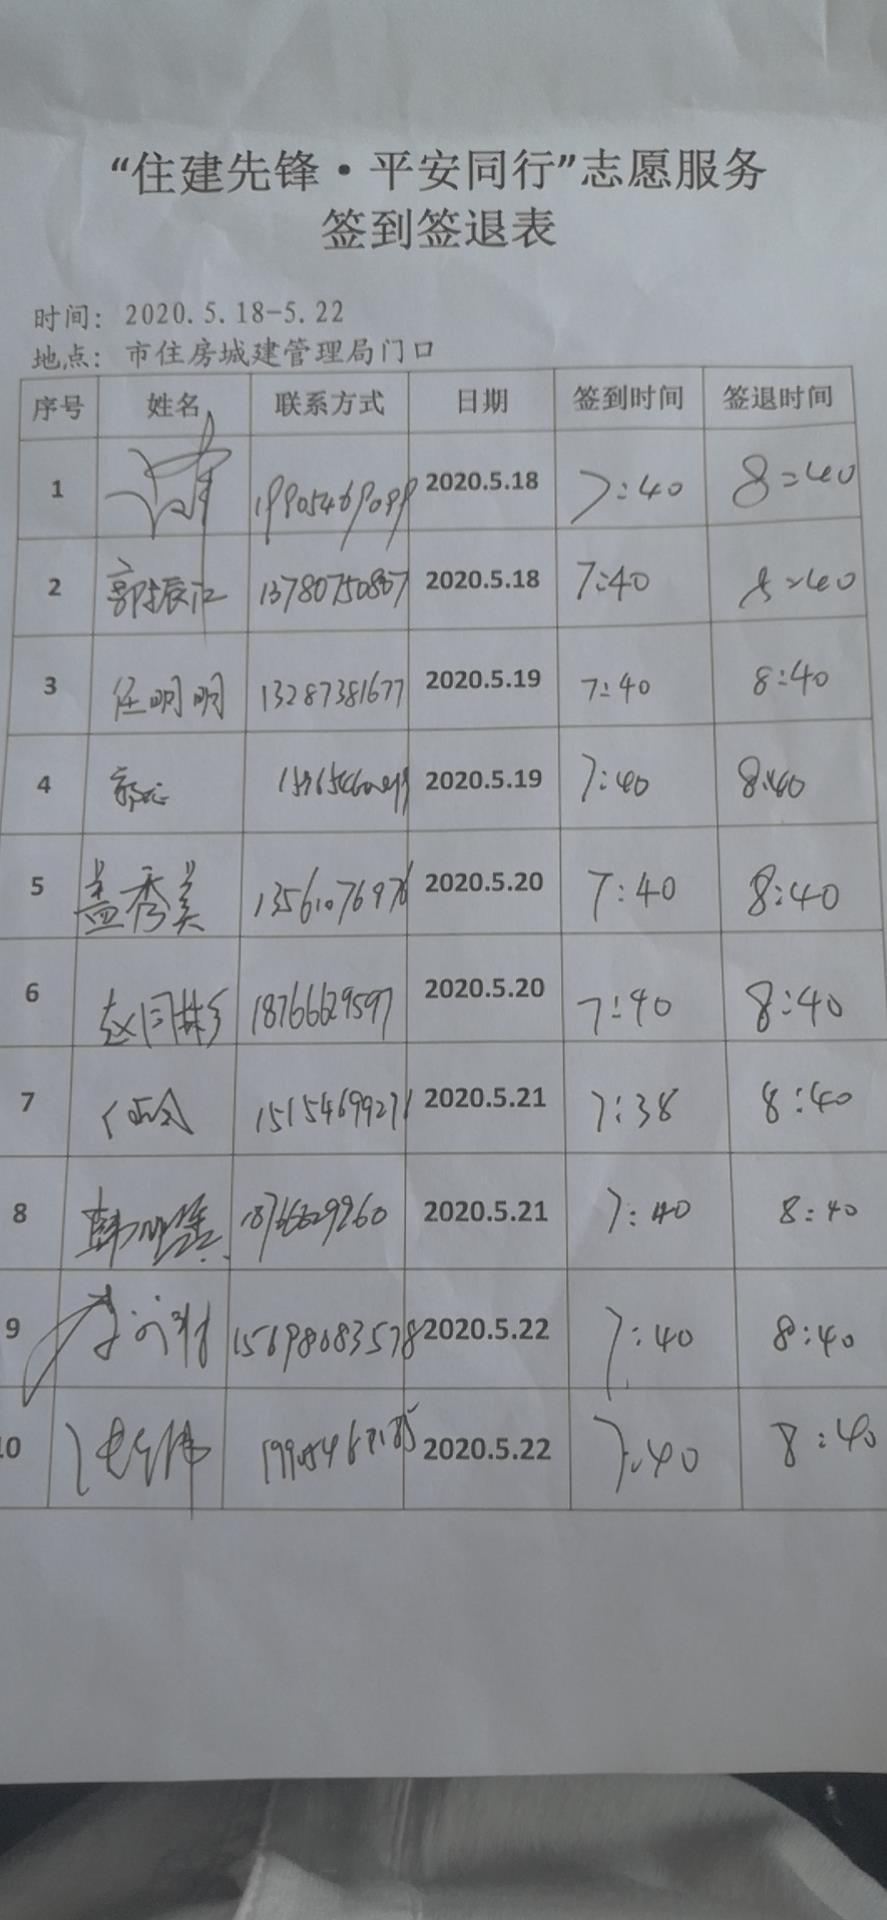 “住建先锋·平安同行”志愿服务
签到签退表
时间：2020.5.18-5.22
地点：市住房城建管理局门口
序号 姓名 联系方式 日期 签到时间 签退时间
1 2020.5.18 7:40 8:40
2 郭振江 13780750867 2020.5.18 7:40 8:40
3 任明明 13287381677 2020.5.19 7:40 8:40
4 2020.5.19 7:40 8:40
5 盖秀美 13561076976 2020.5.20 7:40 8:40
6 18766629597 2020.5.20 7:40 8:40
7 15154699271 2020.5.21 7:38 8:40
8 18766629260 2020.5.21 7:40 8:40
9 15698083578 2020.5.22 7:40 8:40
10 2020.5.22 7:40 8:40